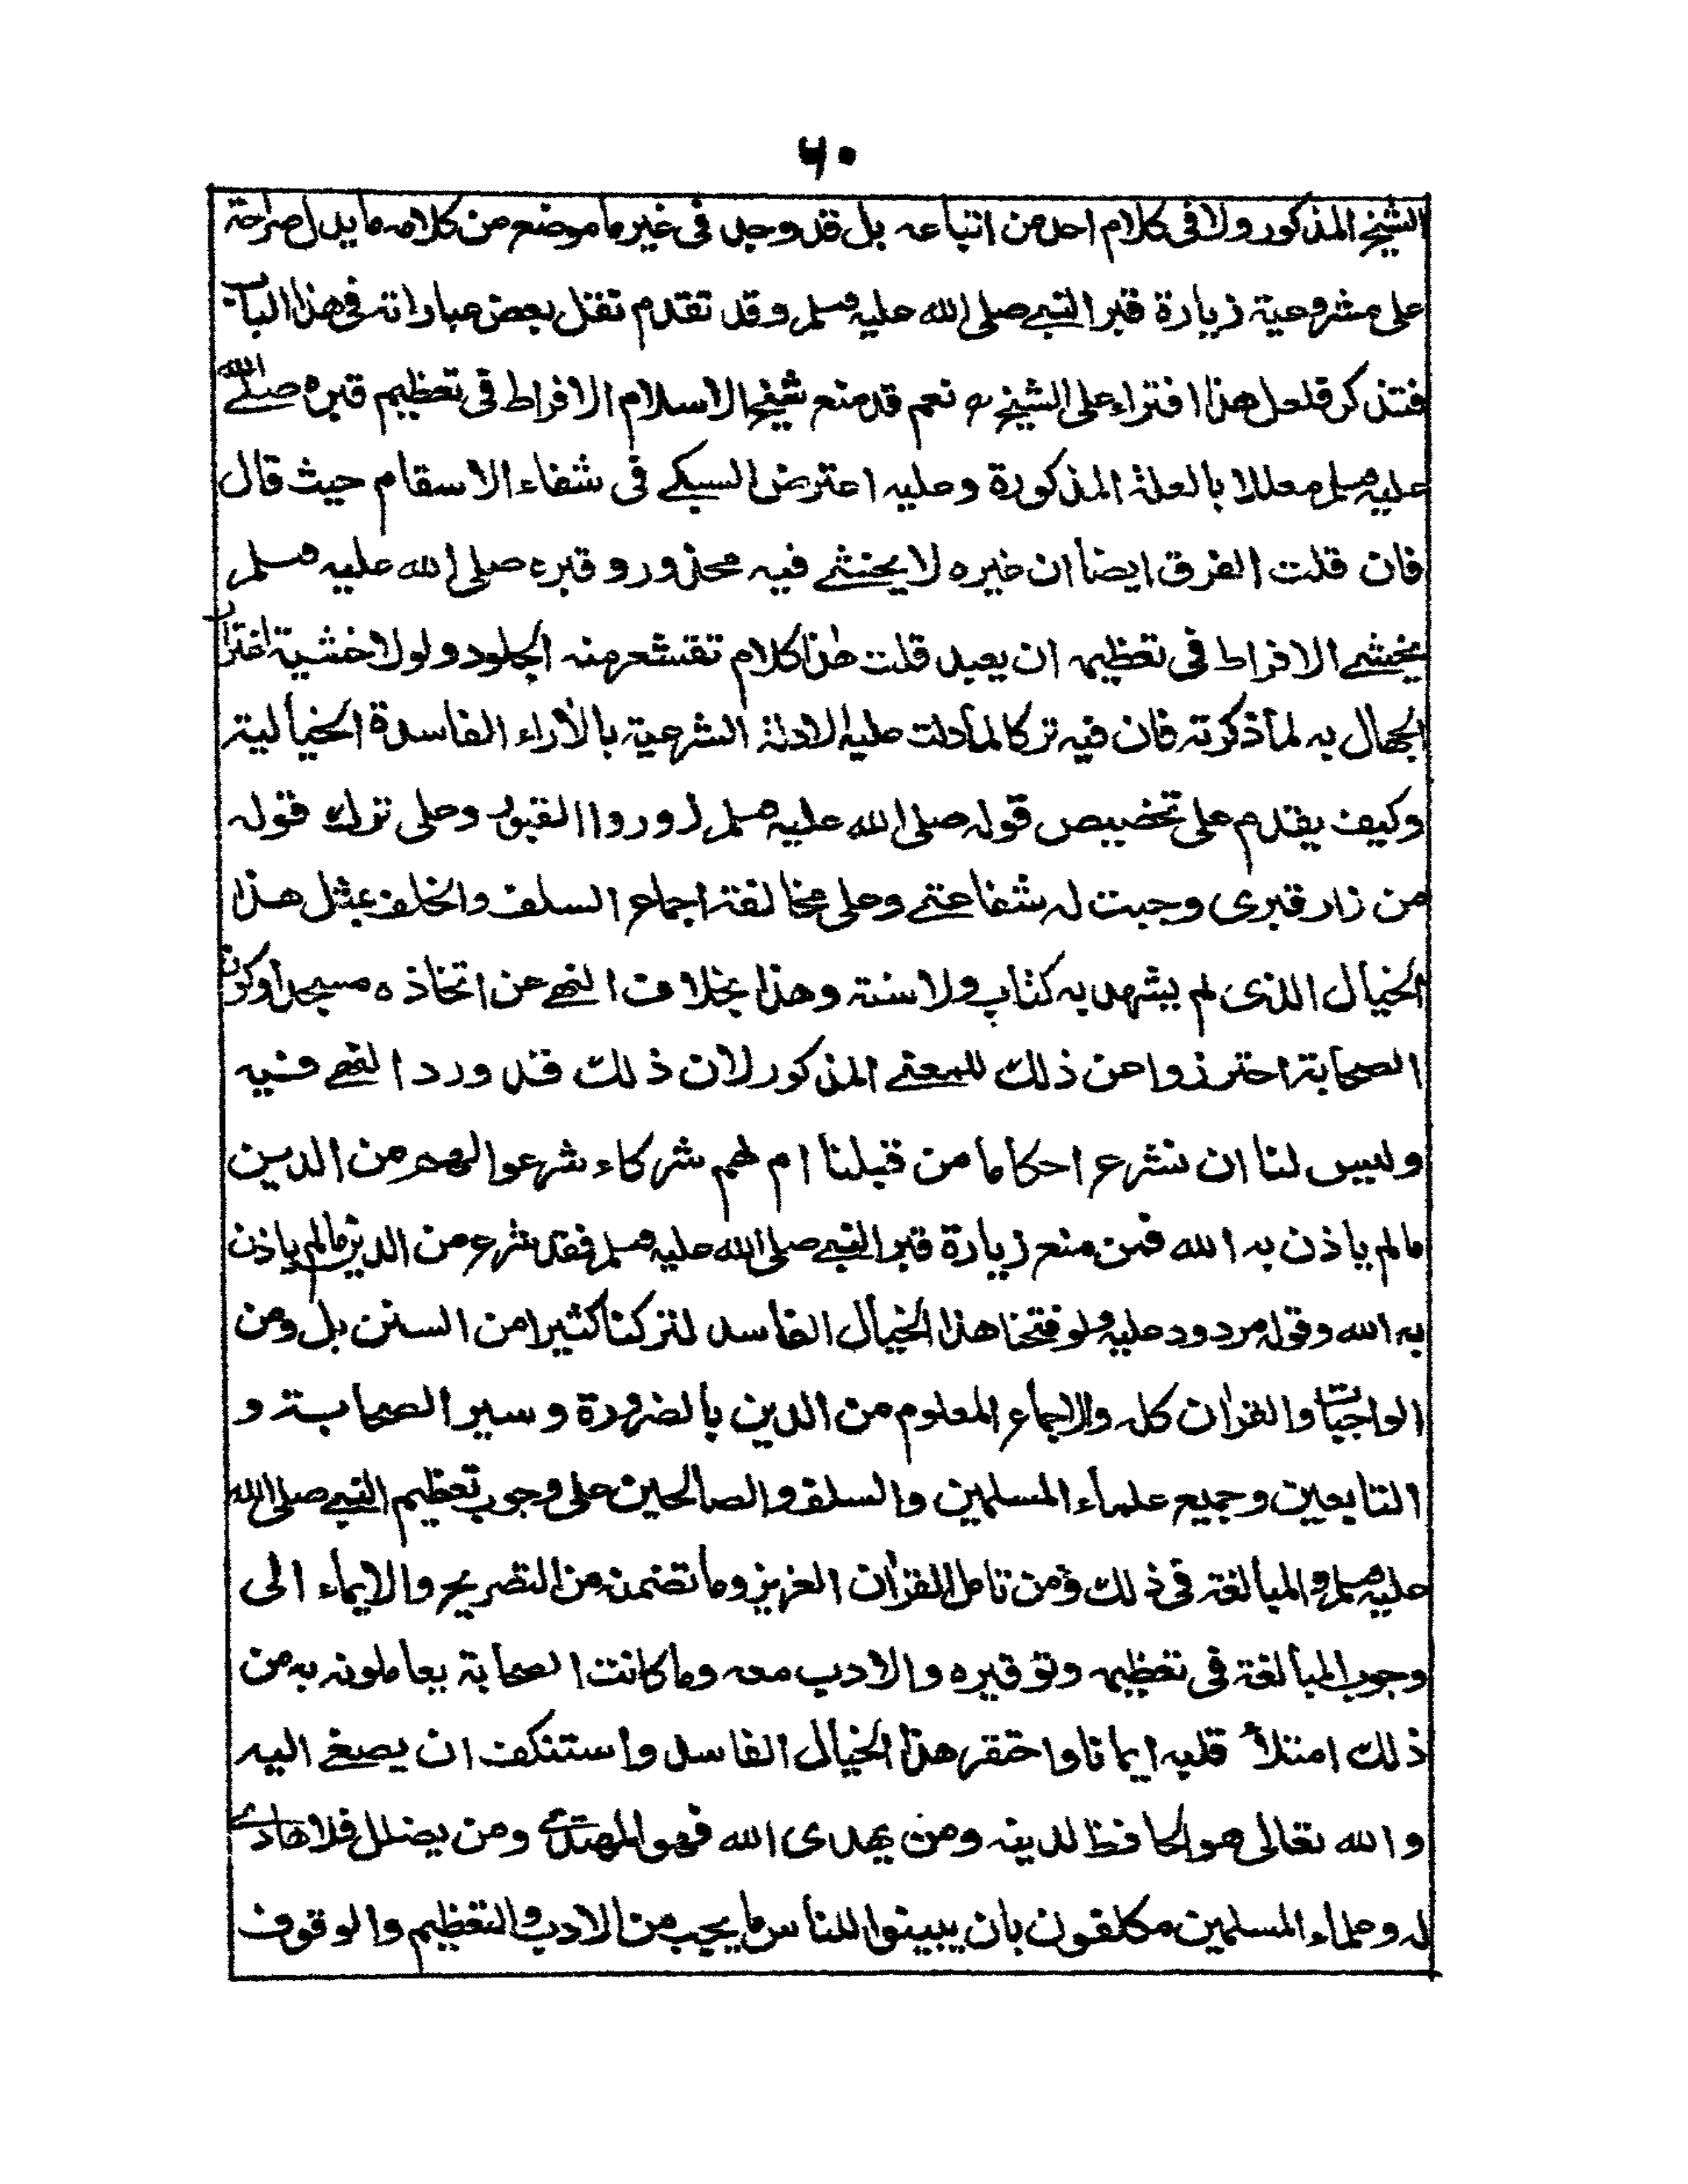 ۶۰
الشيخ المذكور ولا فى كلام احد من اتباعه بل قد وجد فى غير ما موضع من كلامه ما يدل صراحة
على مشروعية زيارة قبر النبى صلى الله عليه وسلم وقد تقدم نقل بعض عباراته فى هذا الباب
فتذكر فلعل هذا افتراء على الشيخ رح نعم قد منع شيخ الاسلام الافراط فى تعظيم قبره صلى الله
عليه وسلم معللا بالعلة المذكورة وعليه اعترض السبكى فى شفاء الاسقام حيث قال
فان قلت الفرق ايضا ان غيره لا يخشى فيه محذور وقبره صلى الله عليه وسلم
يخشى الافراط فى تعظيمه ان يعبد قلت هذا كلام تقشعر منه الجلود ولولا خشية اغترار
الجهال به لما ذكرته فان فيه تركا لما دلت عليه الادلة الشرعية بالأراء الفاسدة الخيالية
وكيف يقدم على تخصيص قوله صلى الله عليه وسلم زوروا القبور وعلى ترك قوله
من زار قبرى وجبت له شفاعتى وعلى مخالفة اجماع السلف والخلف بمثل هذا
الخيال الذى لم يشهد به كتاب ولا سنة وهذا بخلاف النهى عن اتخاذه مسجدا وكون
الصحابة احترزوا عن ذلك للمعنى المذكور لان ذلك قد ورد النهى فيه
وليس لنا ان نشرع احكاما من قبلنا ام لهم شركاء شرعوا لهم من الدين
مالم ياذن به الله فمن منع زيارة قبر النبى صلى الله عليه وسلم فقد شرع من الدين مالم ياذن
به الله وقوله مردود عليه ولو فتحنا هذا الخيال الفاسد لتركنا كثيرا من السنن بل ومن
الواجبات والقران كله والاجماع المعلوم من الدين بالضرورة وسير الصحابة و
التابعين وجميع علماء المسلمين والسلف والصالحين على وجوب تعظيم النبى صلى الله
عليه وسلم والمبالغة فى ذلك ومن تامل القران العزيز وما تضمنه من التصريح والايماء الى
وجوب المبالغة فى تعظيمه وتوقيره والادب معه وما كانت الصحابة يعاملونه به من
ذلك امتلأ قلبه ايمانا واحتقر هذا الخيال الفاسد واستنكف ان يصغى اليه
والله تعالى هو الحافظ لدينه ومن يهدى الله فهو المهتدى ومن يضلل فلا هادى
له وعلماء المسلمين مكلفون بان يبينوا للناس ما يجب من الادب والتعظيم والوقوف